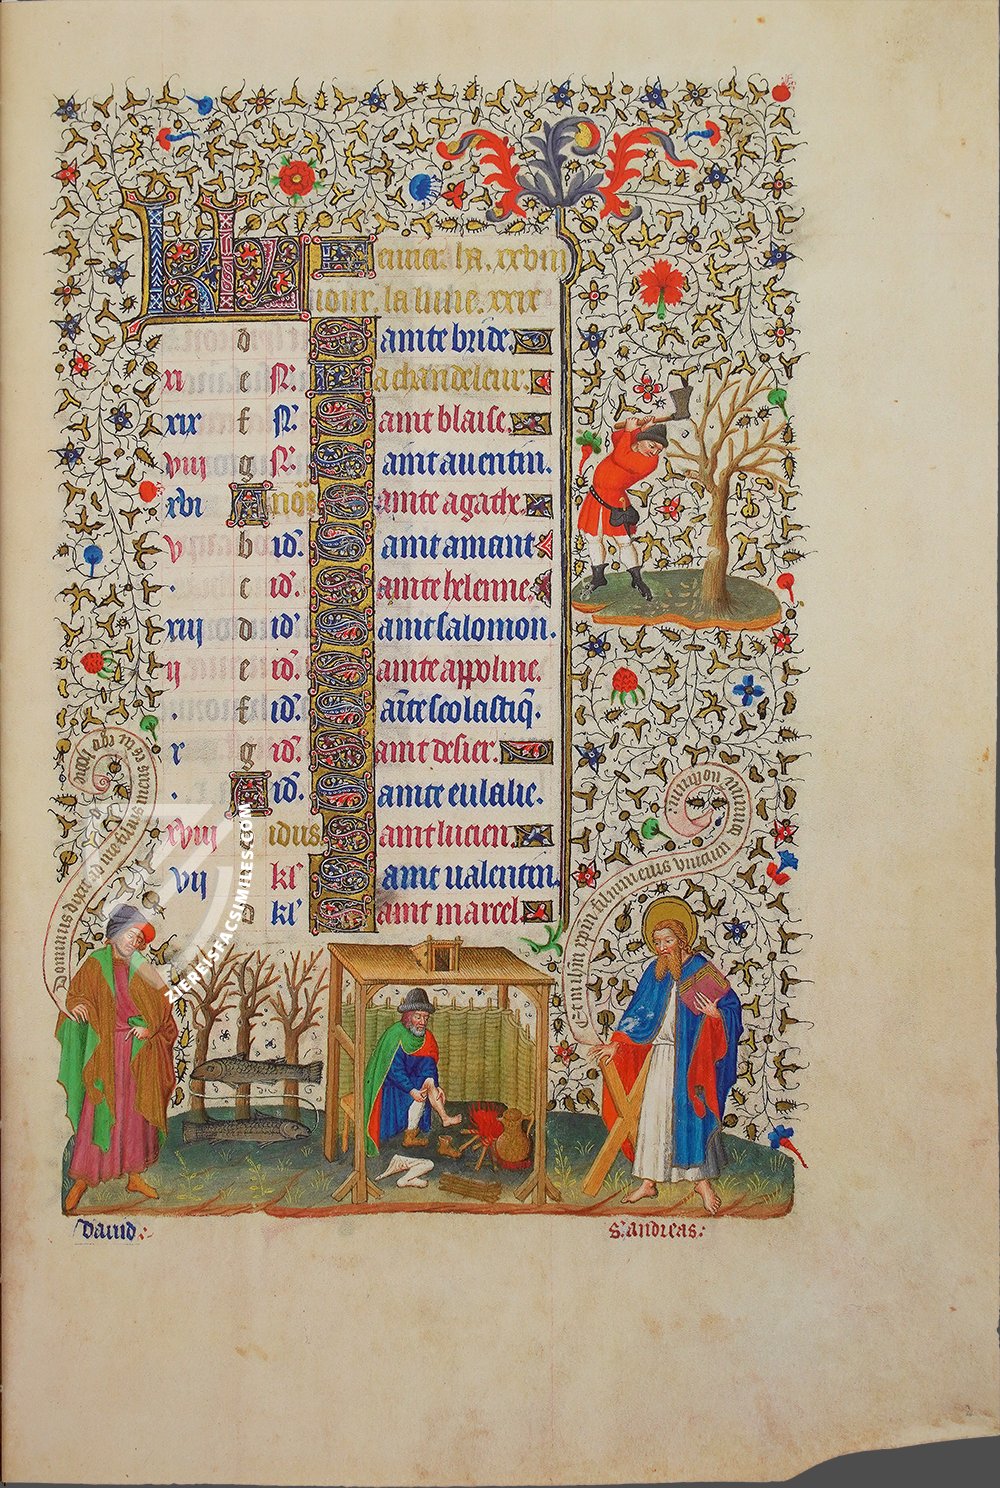 kl feurier la. xxviii
iours. la lune. xxix
d Sainte bride.
xi e N. La chandeleur.
xix f N. Saint blaise.
viii g N. Saint auentin.
xvi A Non Sainte agathe.
v b id. Saint amant
. c id. Sainte helenne.
xiii d id. Saint salomon.
ii e id. Sainte appoline.
. f id. Sāīte scolastiq̄.
x g id. Saint desier.
. A id. Sainte eulalie.
xviii idus. Saint lucien.
vii kl Saint ualentin.
d kl Saint marcel.
Dominus dixit ad me filius meus es tu ego hodie
Et in ihm xpm filium eius unicum dominum
ZIEREISFACSIMILES.COM
Dauid:
S. andreas: